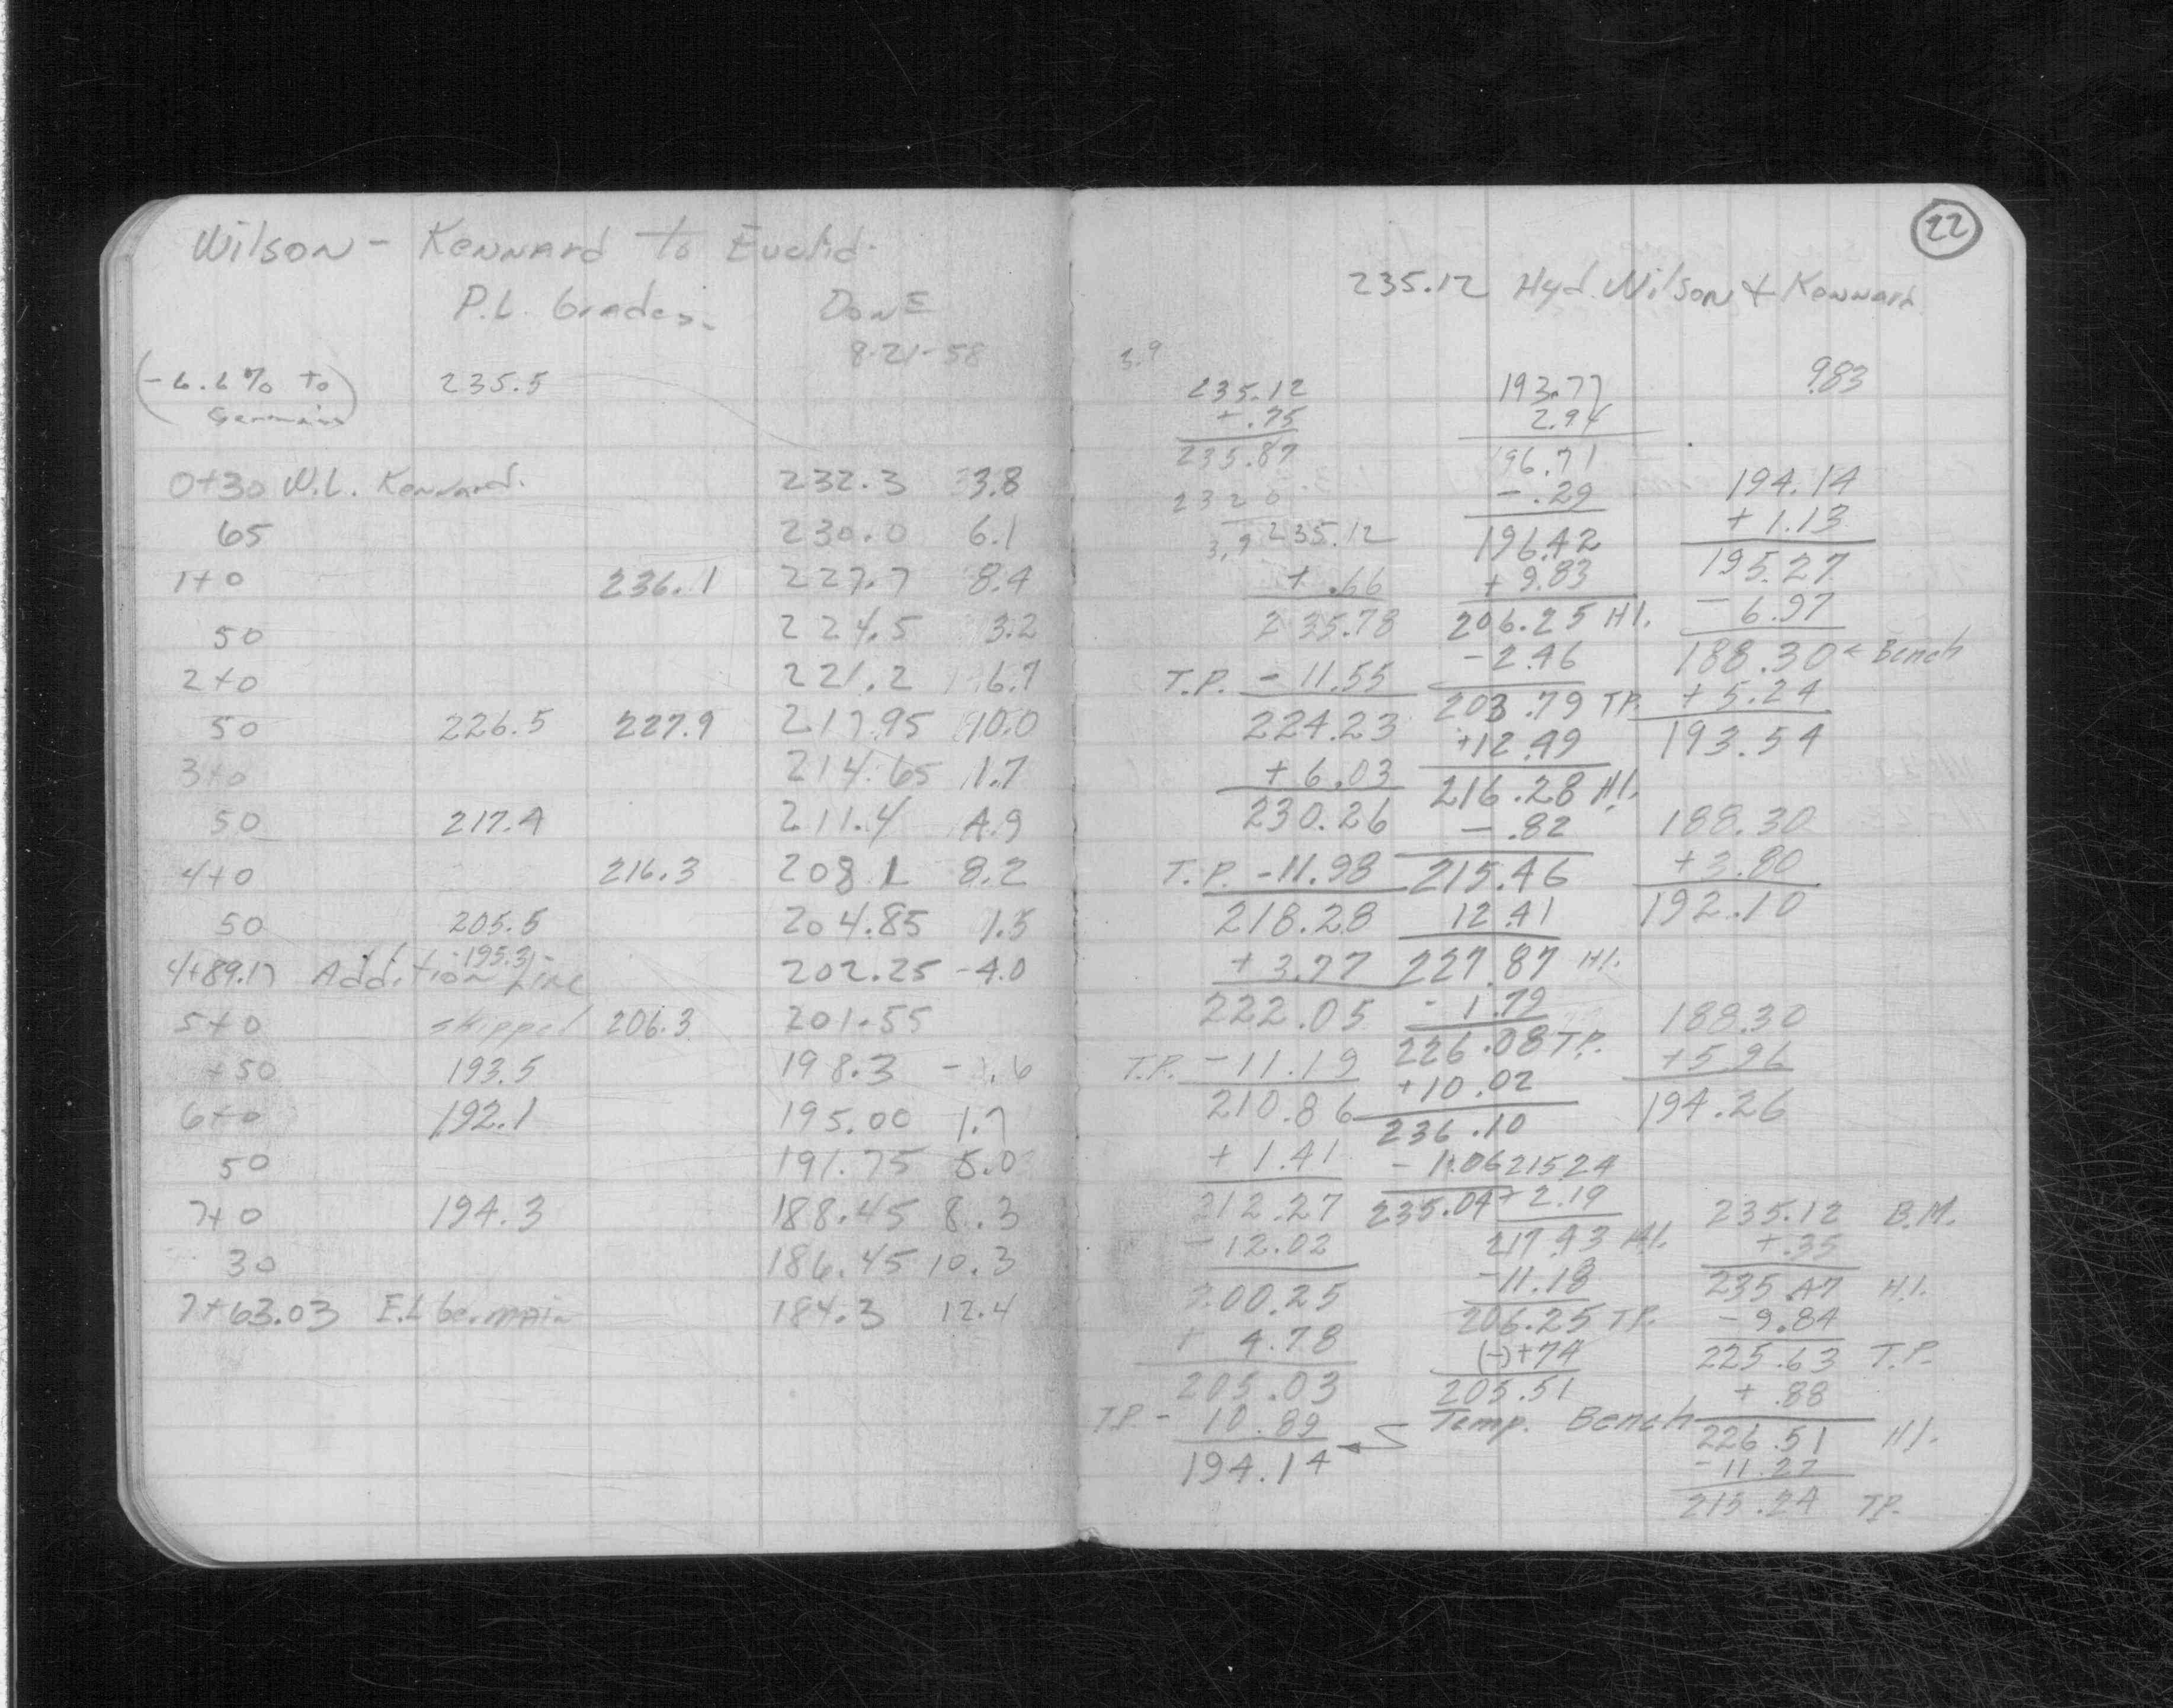 Wilson - Kennard to Euclid.
P.L. Grades. DONE
8-21-58
(-6.6% to Germain) 235.5
0+30 W.L. Kennard. 232.3 3.8
65 230.0 6.1
1+0 236.1 227.7 8.4
50 224.5 3.2
2+0 221.2 6.7
50 226.5 227.9 217.95 10.0
3+0 214.65 1.7
50 217.4 211.4 4.9
4+0 216.3 208.1 8.2
50 205.5 204.85 1.5
195.31
4+89.17 Addition Line 202.25 -4.0
5+0 skipped 206.3 201.55
+50 193.5 198.3
6+0 192.1 195.00 1.7
50 191.75 5.0
7+0 194.3 188.45 8.3
30 186.45 10.3
7+63.03 E.L Germain 184.3 12.4
22
235.12 Hyd. Wilson & Kennard
3.9
235.12
+ .75
235.87
232.0
3.9 235.12
+ .66
235.78
T.P. - 11.55
224.23
+ 6.03
230.26
T.P. - 11.98
218.28
+ 3.77
222.05
T.P. - 11.19
210.86
+ 1.41
212.27
- 12.02
200.25
+ 4.78
205.03
T.P. - 10.89
194.14
193.77
2.94
196.71
- .29
196.42
+ 9.83
206.25 H.I.
- 2.46
203.79 T.P.
+12.49
216.28 H.I.
- .82
215.46
12.41
227.87 H.I.
- 1.79
226.08 T.P.
+10.02
236.10
- 1.06
235.04
215.24
+ 2.19
217.43 H.I.
- 11.18
206.25 T.P.
(-)+74
205.51
Temp. Bench
983
194.14
+ 1.13
195.27
- 6.97
188.30 < Bench
+ 5.24
193.54
188.30
+3.80
192.10
188.30
+5.96
194.26
235.12 B.M.
+ .35
235.47 H.I.
- 9.84
225.63 T.P.
+ .88
226.51 H.I.
- 11.27
215.24 T.P.